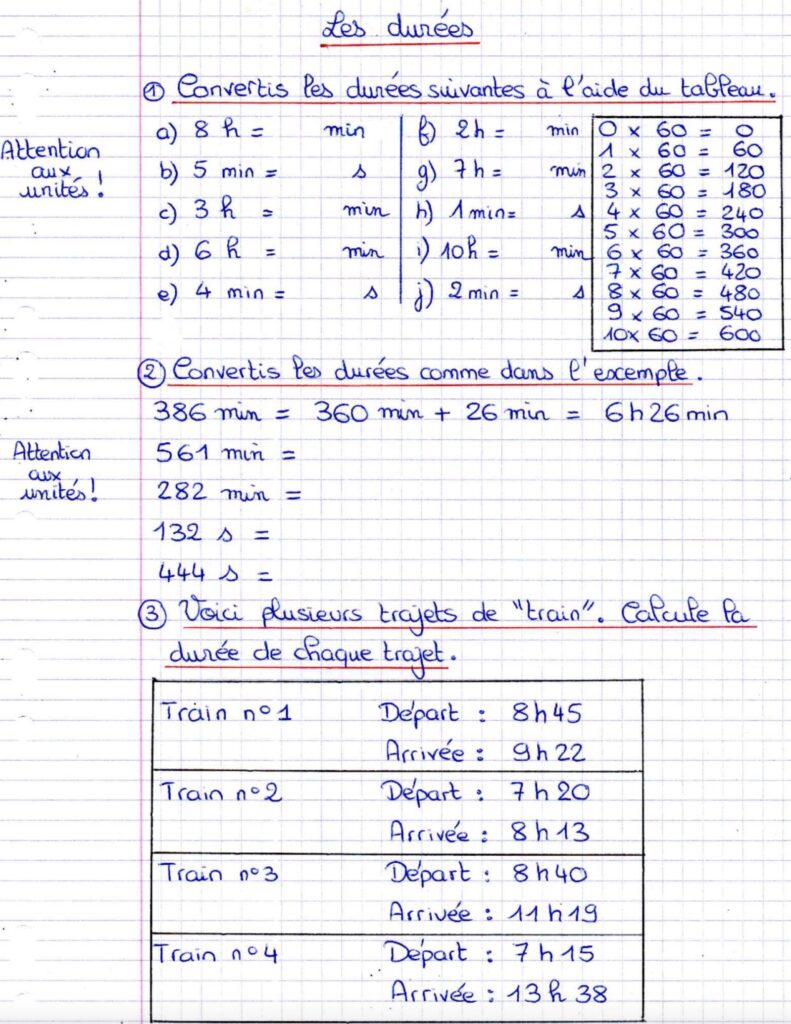 Les durées
① Convertis les durées suivantes à l'aide du tableau.
Attention
aux
unités !
a) 8 h = min
b) 5 min = s
c) 3 h = min
d) 6 h = min
e) 4 min = s
f) 2h = min
g) 7h = min
h) 1 min= s
i) 10h = min
j) 2 min = s
0 x 60 = 0
1 x 60 = 60
2 x 60 = 120
3 x 60 = 180
4 x 60 = 240
5 x 60 = 300
6 x 60 = 360
7 x 60 = 420
8 x 60 = 480
9 x 60 = 540
10x 60 = 600
② Convertis les durées comme dans l'excemple.
386 min = 360 min + 26 min = 6h26min
Attention
aux
unités!
561 min =
282 min =
132 s =
444 s =
③ Voici plusieurs trajets de "train". Calcule la
durée de chaque trajet.
Train n°1 Départ : 8h45
Arrivée : 9h22
Train n°2 Départ : 7h20
Arrivée : 8h13
Train n°3 Départ : 8h40
Arrivée : 11h19
Train n°4 Départ : 7h15
Arrivée : 13h 38